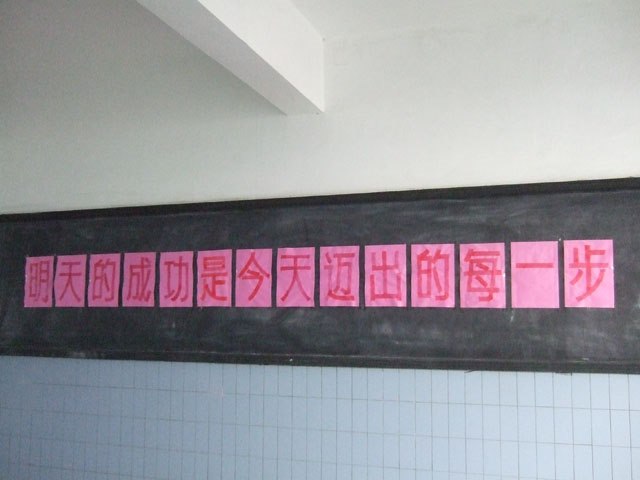 明天的成功是今天迈出的每一步